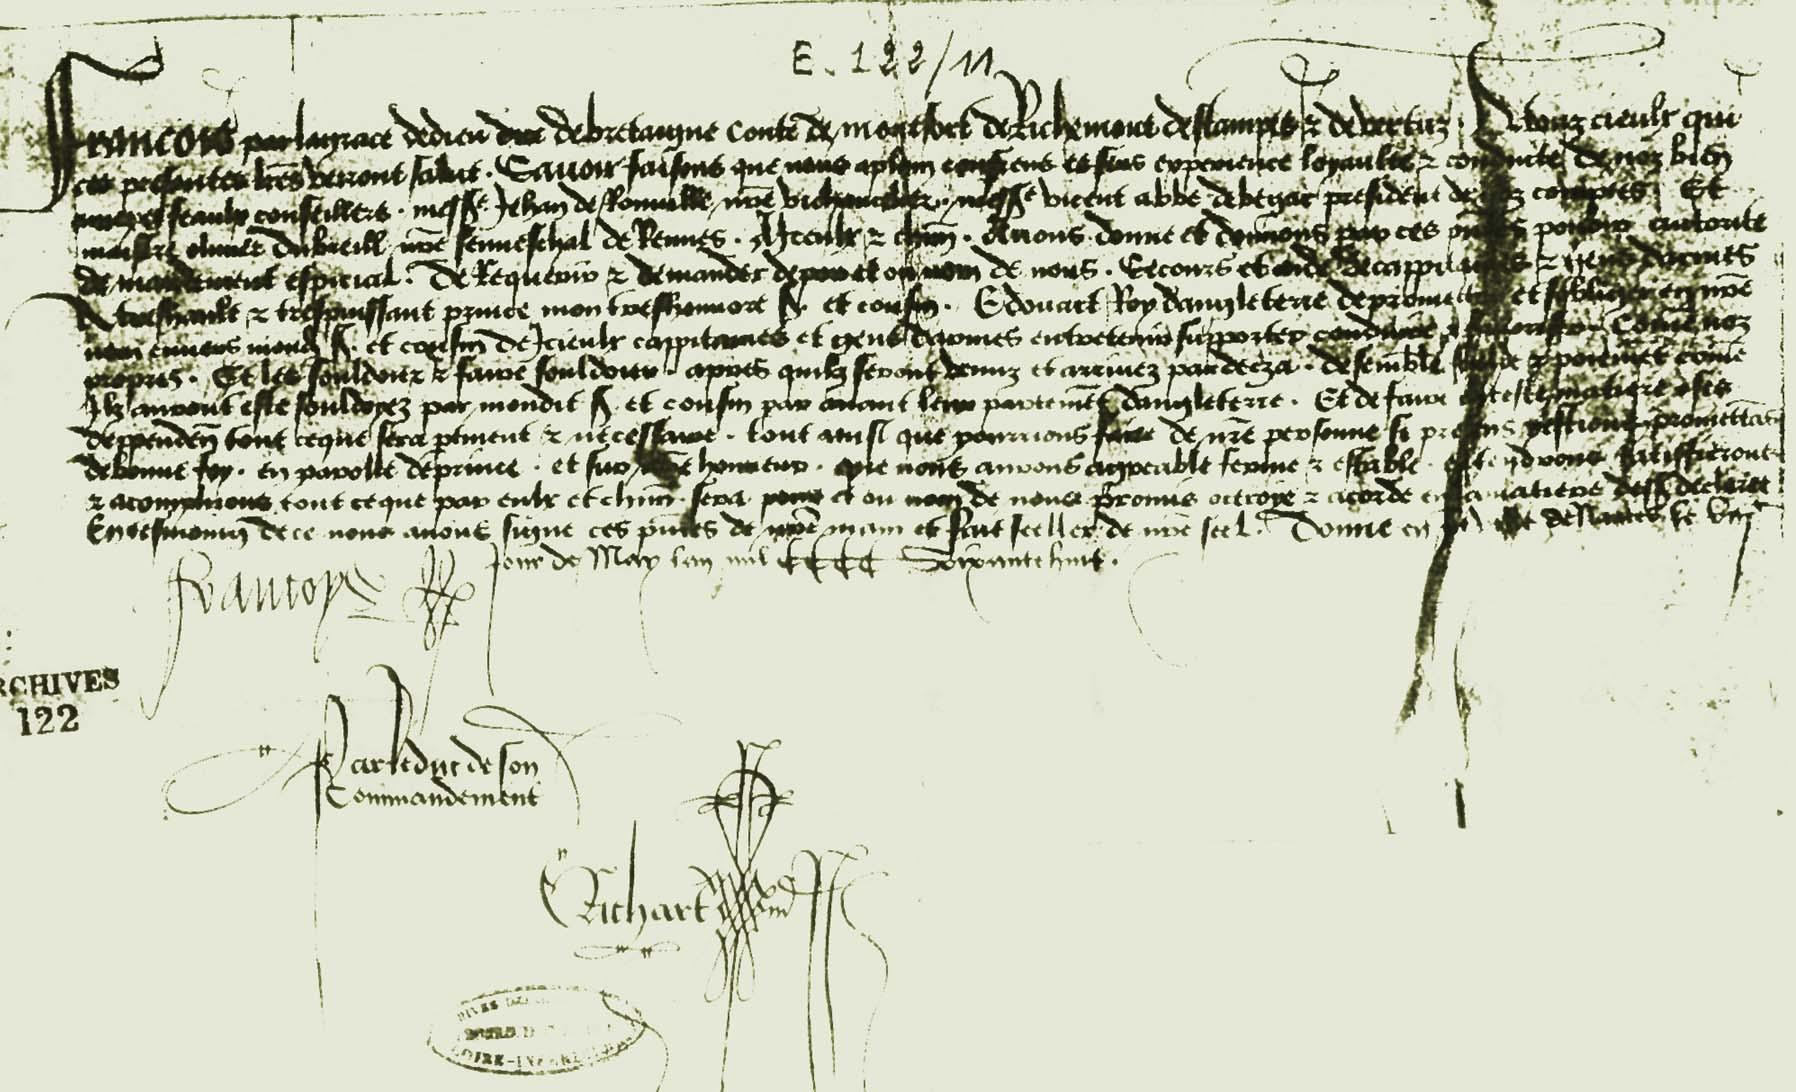 E. 122/11
Francois par la grace de dieu duc de bretaigne conte de montfort de Richemont destampes & de vertuz . A touz ceulx qui
ces presentes lres verront salut . Savoir faisons que nous aplain experience loyaulte & conduite de noz bien
amez et feaulx conseillers . messe Jehan de Rouville nre vichancelier . messe vicent abbe de begar president de noz comptes . Et
maistre olivier du breill nre senneschal de Rennes . A iceulx & chun . Avons donne et donnons par ces pntes povoir auctorite
& mandement especial . De Requerir & demander de par et ou nom de nous . Secours et aide de cappitaines & gens darmes
A treshault & trespuissant prince mon treshonnore sr et cousin . Edouart Roy dangleterre de promectre et obliger en nre
nom envers mondit sr et cousin de iceulx cappitaines et gens darmes entretenir supporter conduire & favoriser . Comme noz
propres . Et les souldoier & faire souldoier . apres quilz seront venuz et arrivez par deczа . de semblable soulde & poiement comme
Ilz auront este souldoyez par mondit sr et cousin par avant leur partement dangleterre . Et de faire en ceste matiere et ses
deppenden tout ceque sera ptinent & necessaire . tout ainsi que pourrions faire de nre personne si presens y estions . promettans
de bonne foy . en parolle de prince . et sur nre honneur . que nous aurons aggreable ferme & estable . et tendrons
& acomplirons tout ceque par eulx et chun sera pour et ou nom de nous promis octroye & acorde en la matiere dessus decleree
En tesmoing de ce nous avons signe ces pntes de nre main et fait seeller de nre seel . Donne en de nantes le
Jour de May lan mil CCCC Soixante huit .
Francoys
ARCHIVES
122
Par le duc de son
Commandement
Richart
LOIRE-INFERIEURE